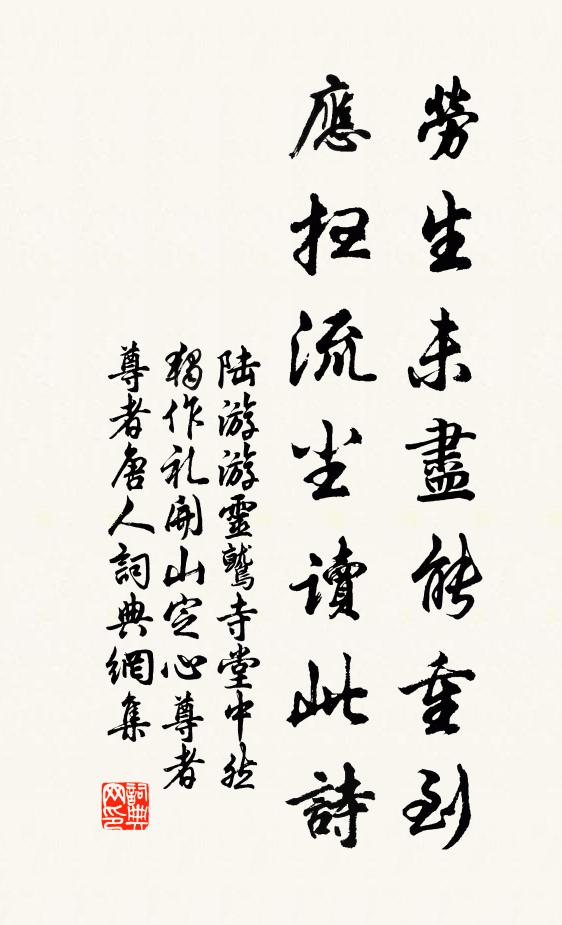 勞生未盡能重到
應扫流尘讀此詩
陆游游靈鷲寺堂中然
獨作礼開山定心尊者
尊者唐人詞典網集
詞典网印